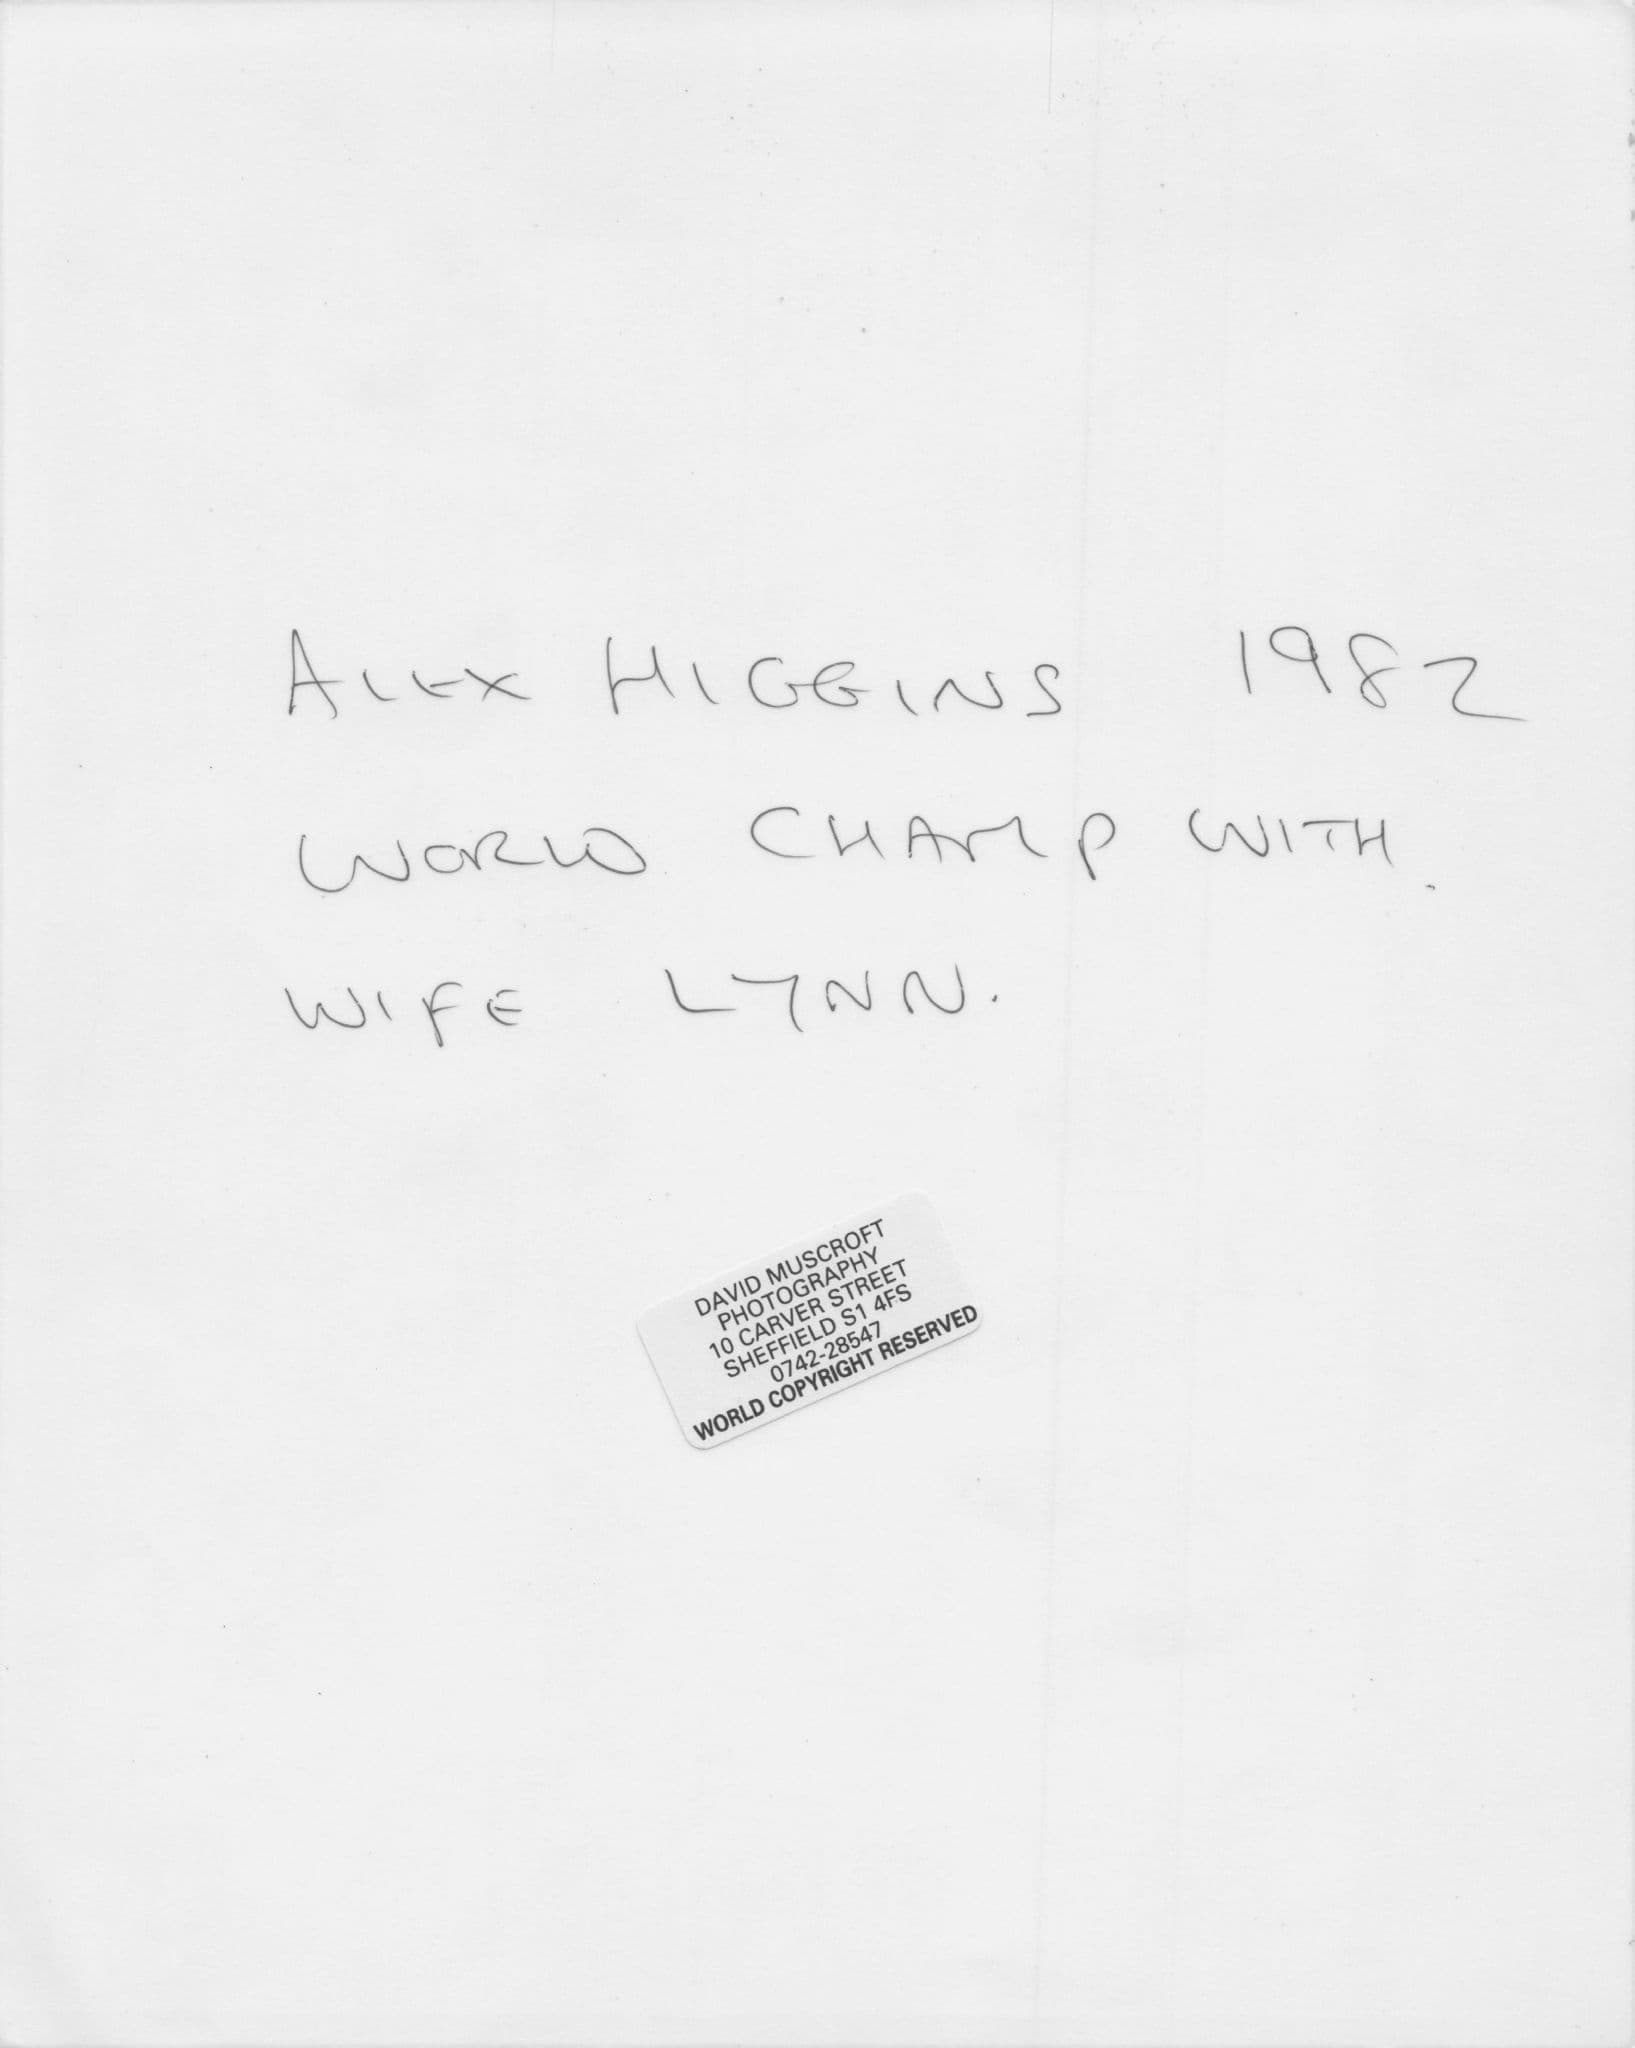 ALEX HIGGINS 1982
WORLD CHAMP WITH.
WIFE LYNN.
DAVID MUSCROFT
PHOTOGRAPHY
10 CARVER STREET
SHEFFIELD S1 4FS
0742-28547
WORLD COPYRIGHT RESERVED